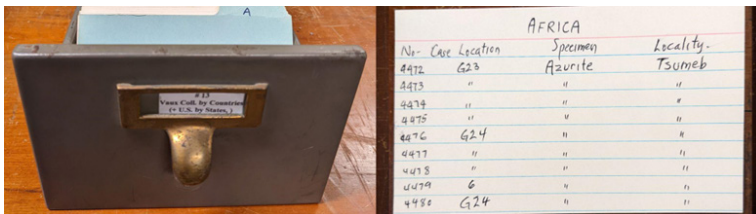 A
# 13
Vaux Coll. by Countries
(+ U.S. by States, )
AFRICA
No- Case Location Specimen Locality.
4472 G23 Azurite Tsumeb
4473 " " "
4474 " " "
4475 " " "
4476 G24 " "
4477 " " "
4478 " " "
4479 6 " "
4480 G24 " "